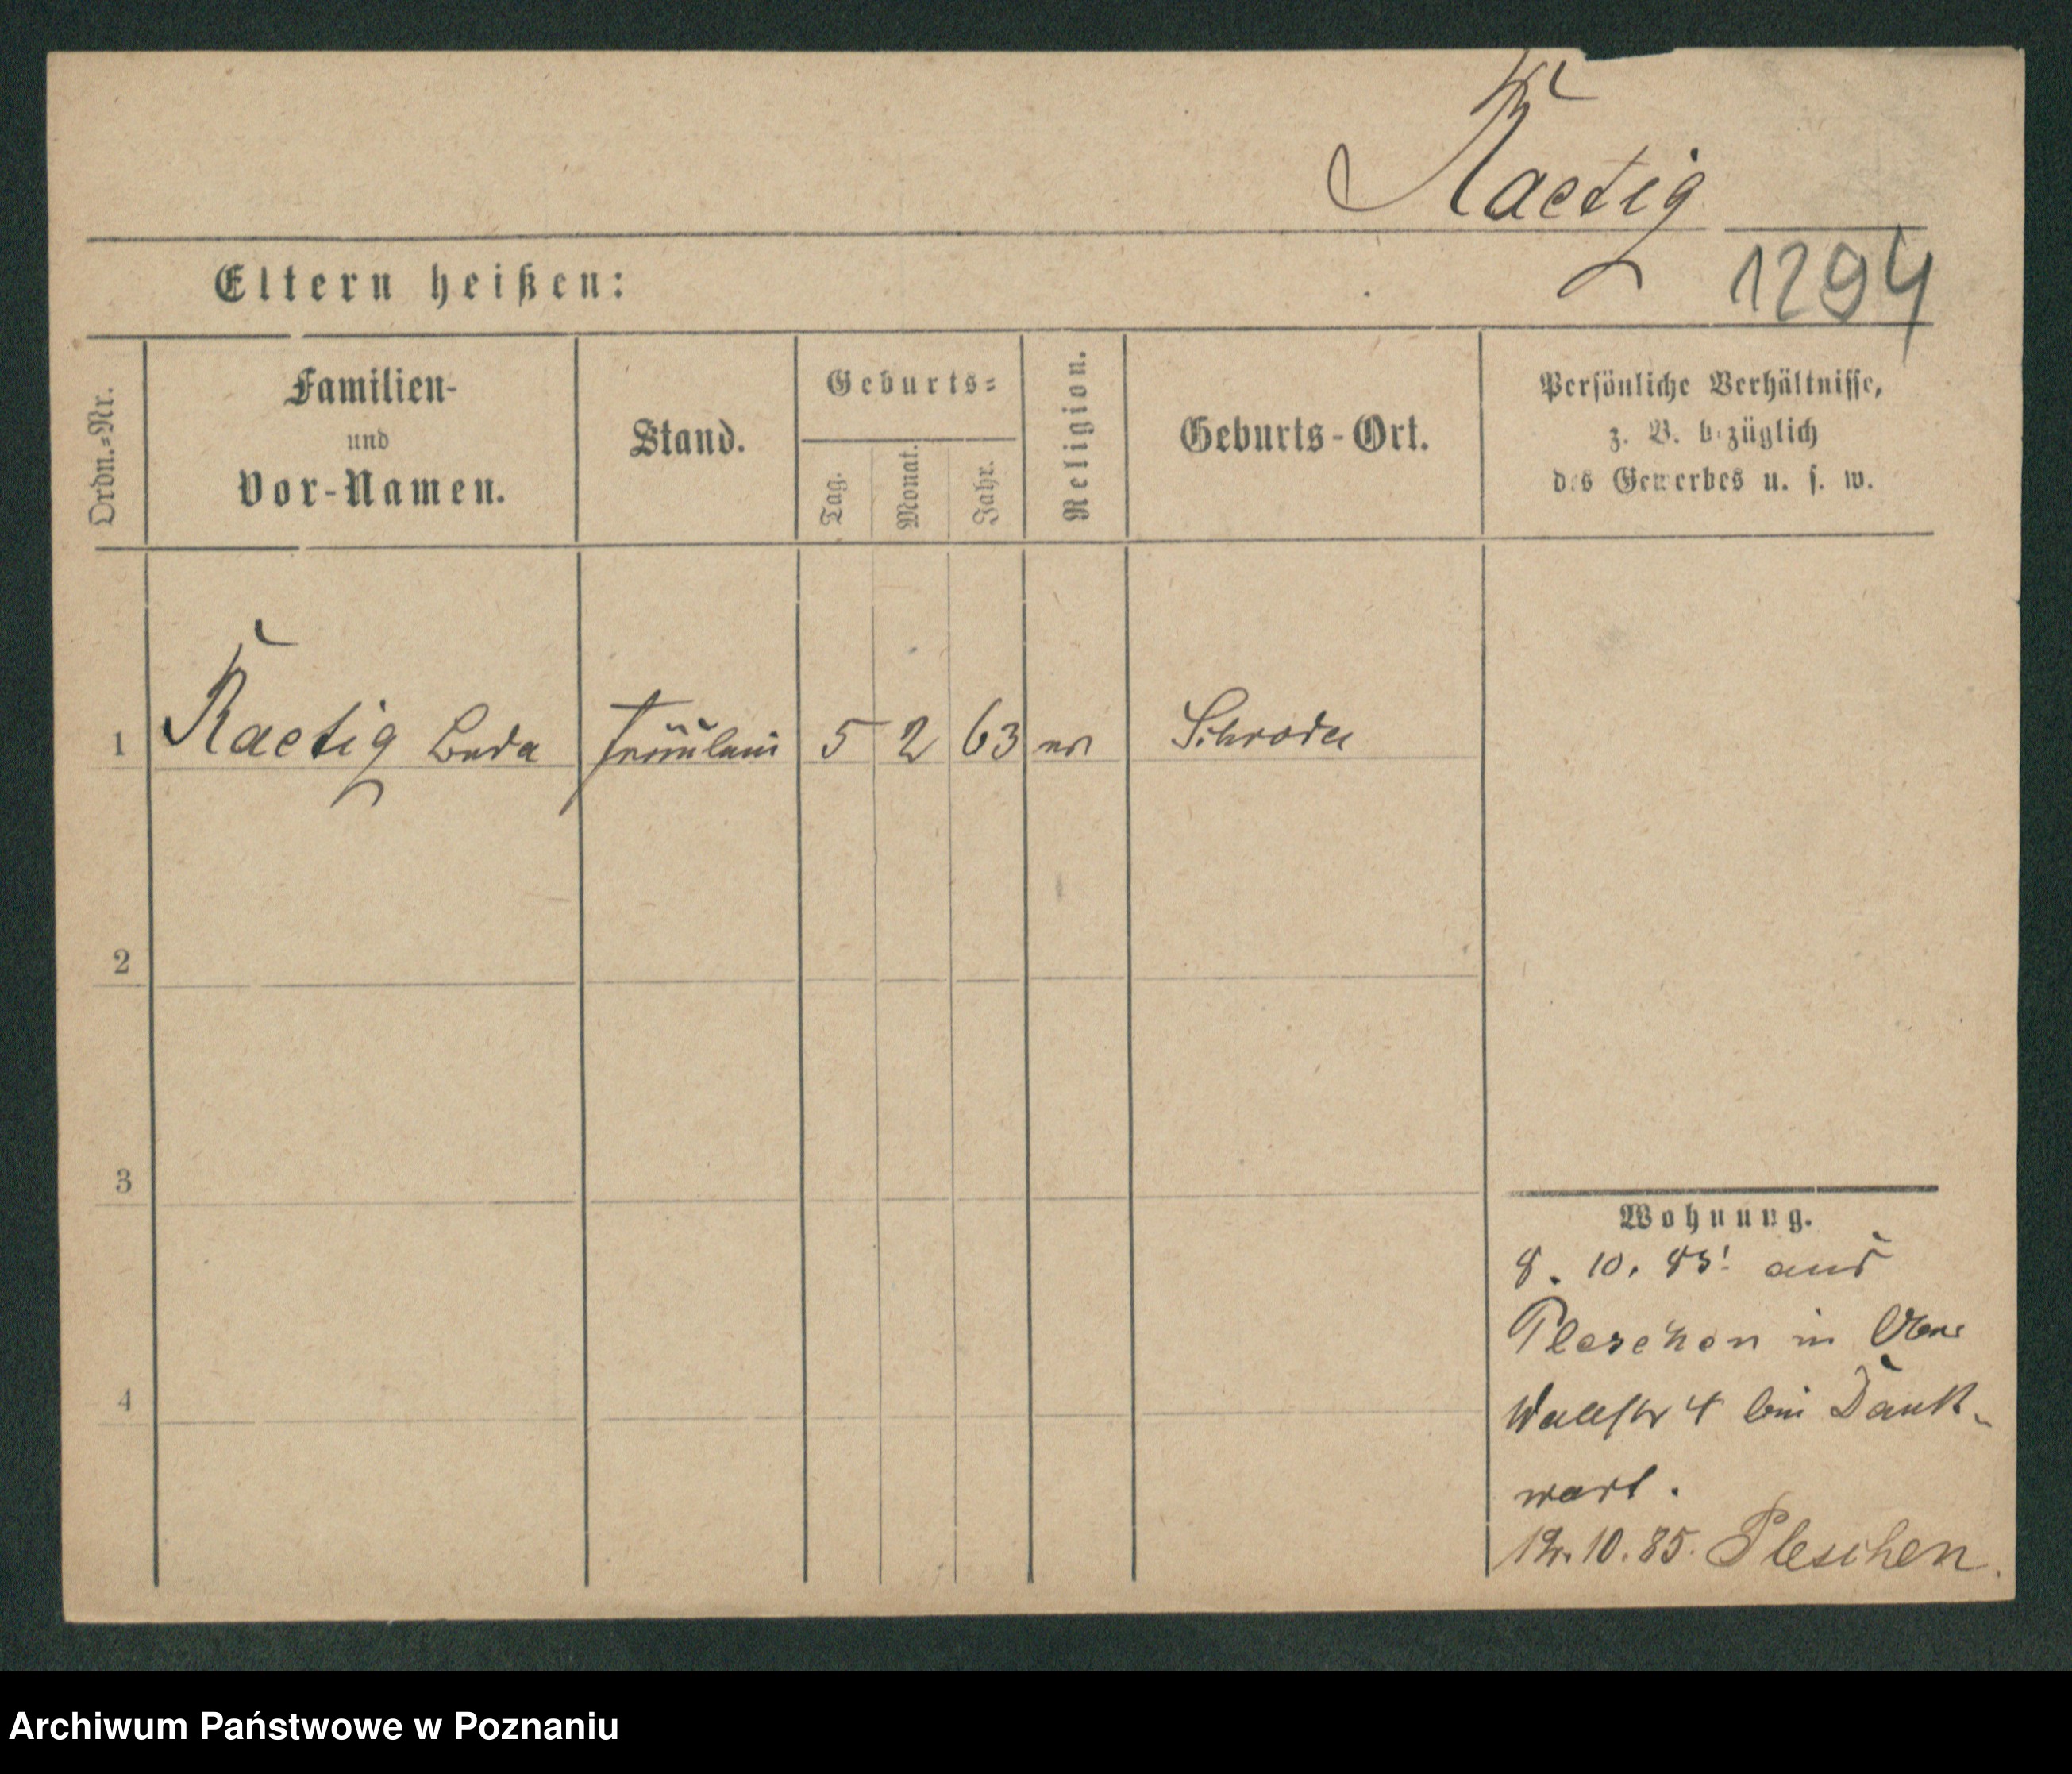 Raetig
1294
Eltern heißen:
Ordn.-Nr.
Familien-
und
Vor-Namen.
Stand.
Geburts-
Tag.
Monat.
Jahr.
Religion.
Geburts-Ort.
Persönliche Verhältnisse,
z. B. bezüglich
des Gewerbes u. s. w.
1 Raetig Fräulein 5 2 63 Schroda
2
3
4
Wohnung.
8. 10. 85 aus
Pleschen in
Wallstr 4 bei Dank-
wart.
10. 85. Pleschen.
Archiwum Państwowe w Poznaniu